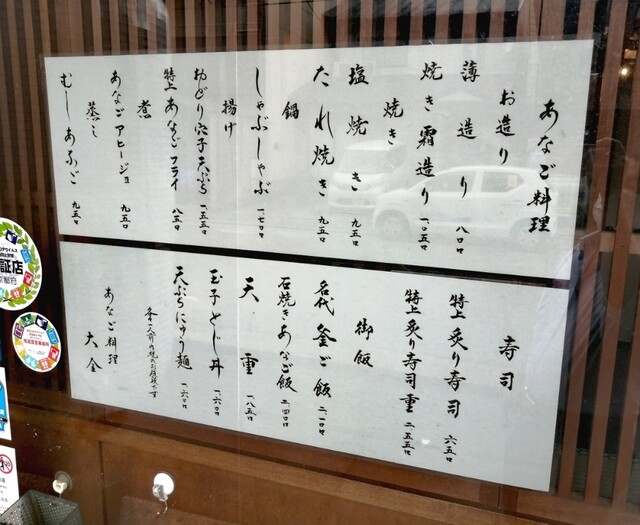 あなご料理
お造り
薄造り 八〇〇
焼き霜造り 一、〇五〇
焼き
塩焼き 九五〇
たれ焼き 九五〇
鍋
しゃぶしゃぶ 一、七〇〇
揚げ
おどり穴子天ぷら 一、五五〇
特上あなごフライ 八五〇
煮
あなごアヒージョ 九五〇
蒸し
むしあなご 九五〇
寿司
特上炙り寿司 六五〇
特上炙り寿司重 二、五五〇
御飯
名代釜ご飯 二、一〇〇
石焼きあなご飯 二、四〇〇
天重 一、八五〇
玉子とじ丼 一、六〇〇
天ぷらにゅう麺 一、六〇〇
あなご料理
大金
証店
京都府